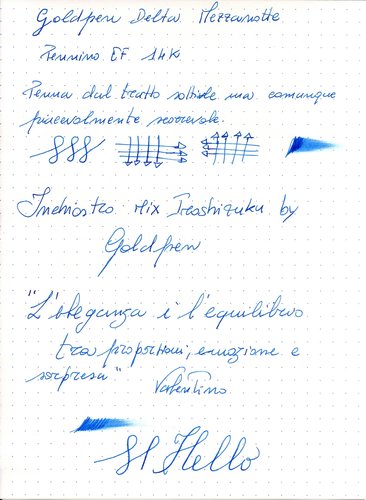 Goldpen Delta Mezzanotte
Pennino EF 14K
Penna dal tratto sottile ma comunque
piacevolmente scorrevole.
Inchiostro Mix Iroshizuku by
Goldpen
"L'eleganza è l'equilibrio
tra proporzioni, emozione e
sorpresa" Valentino
Hello